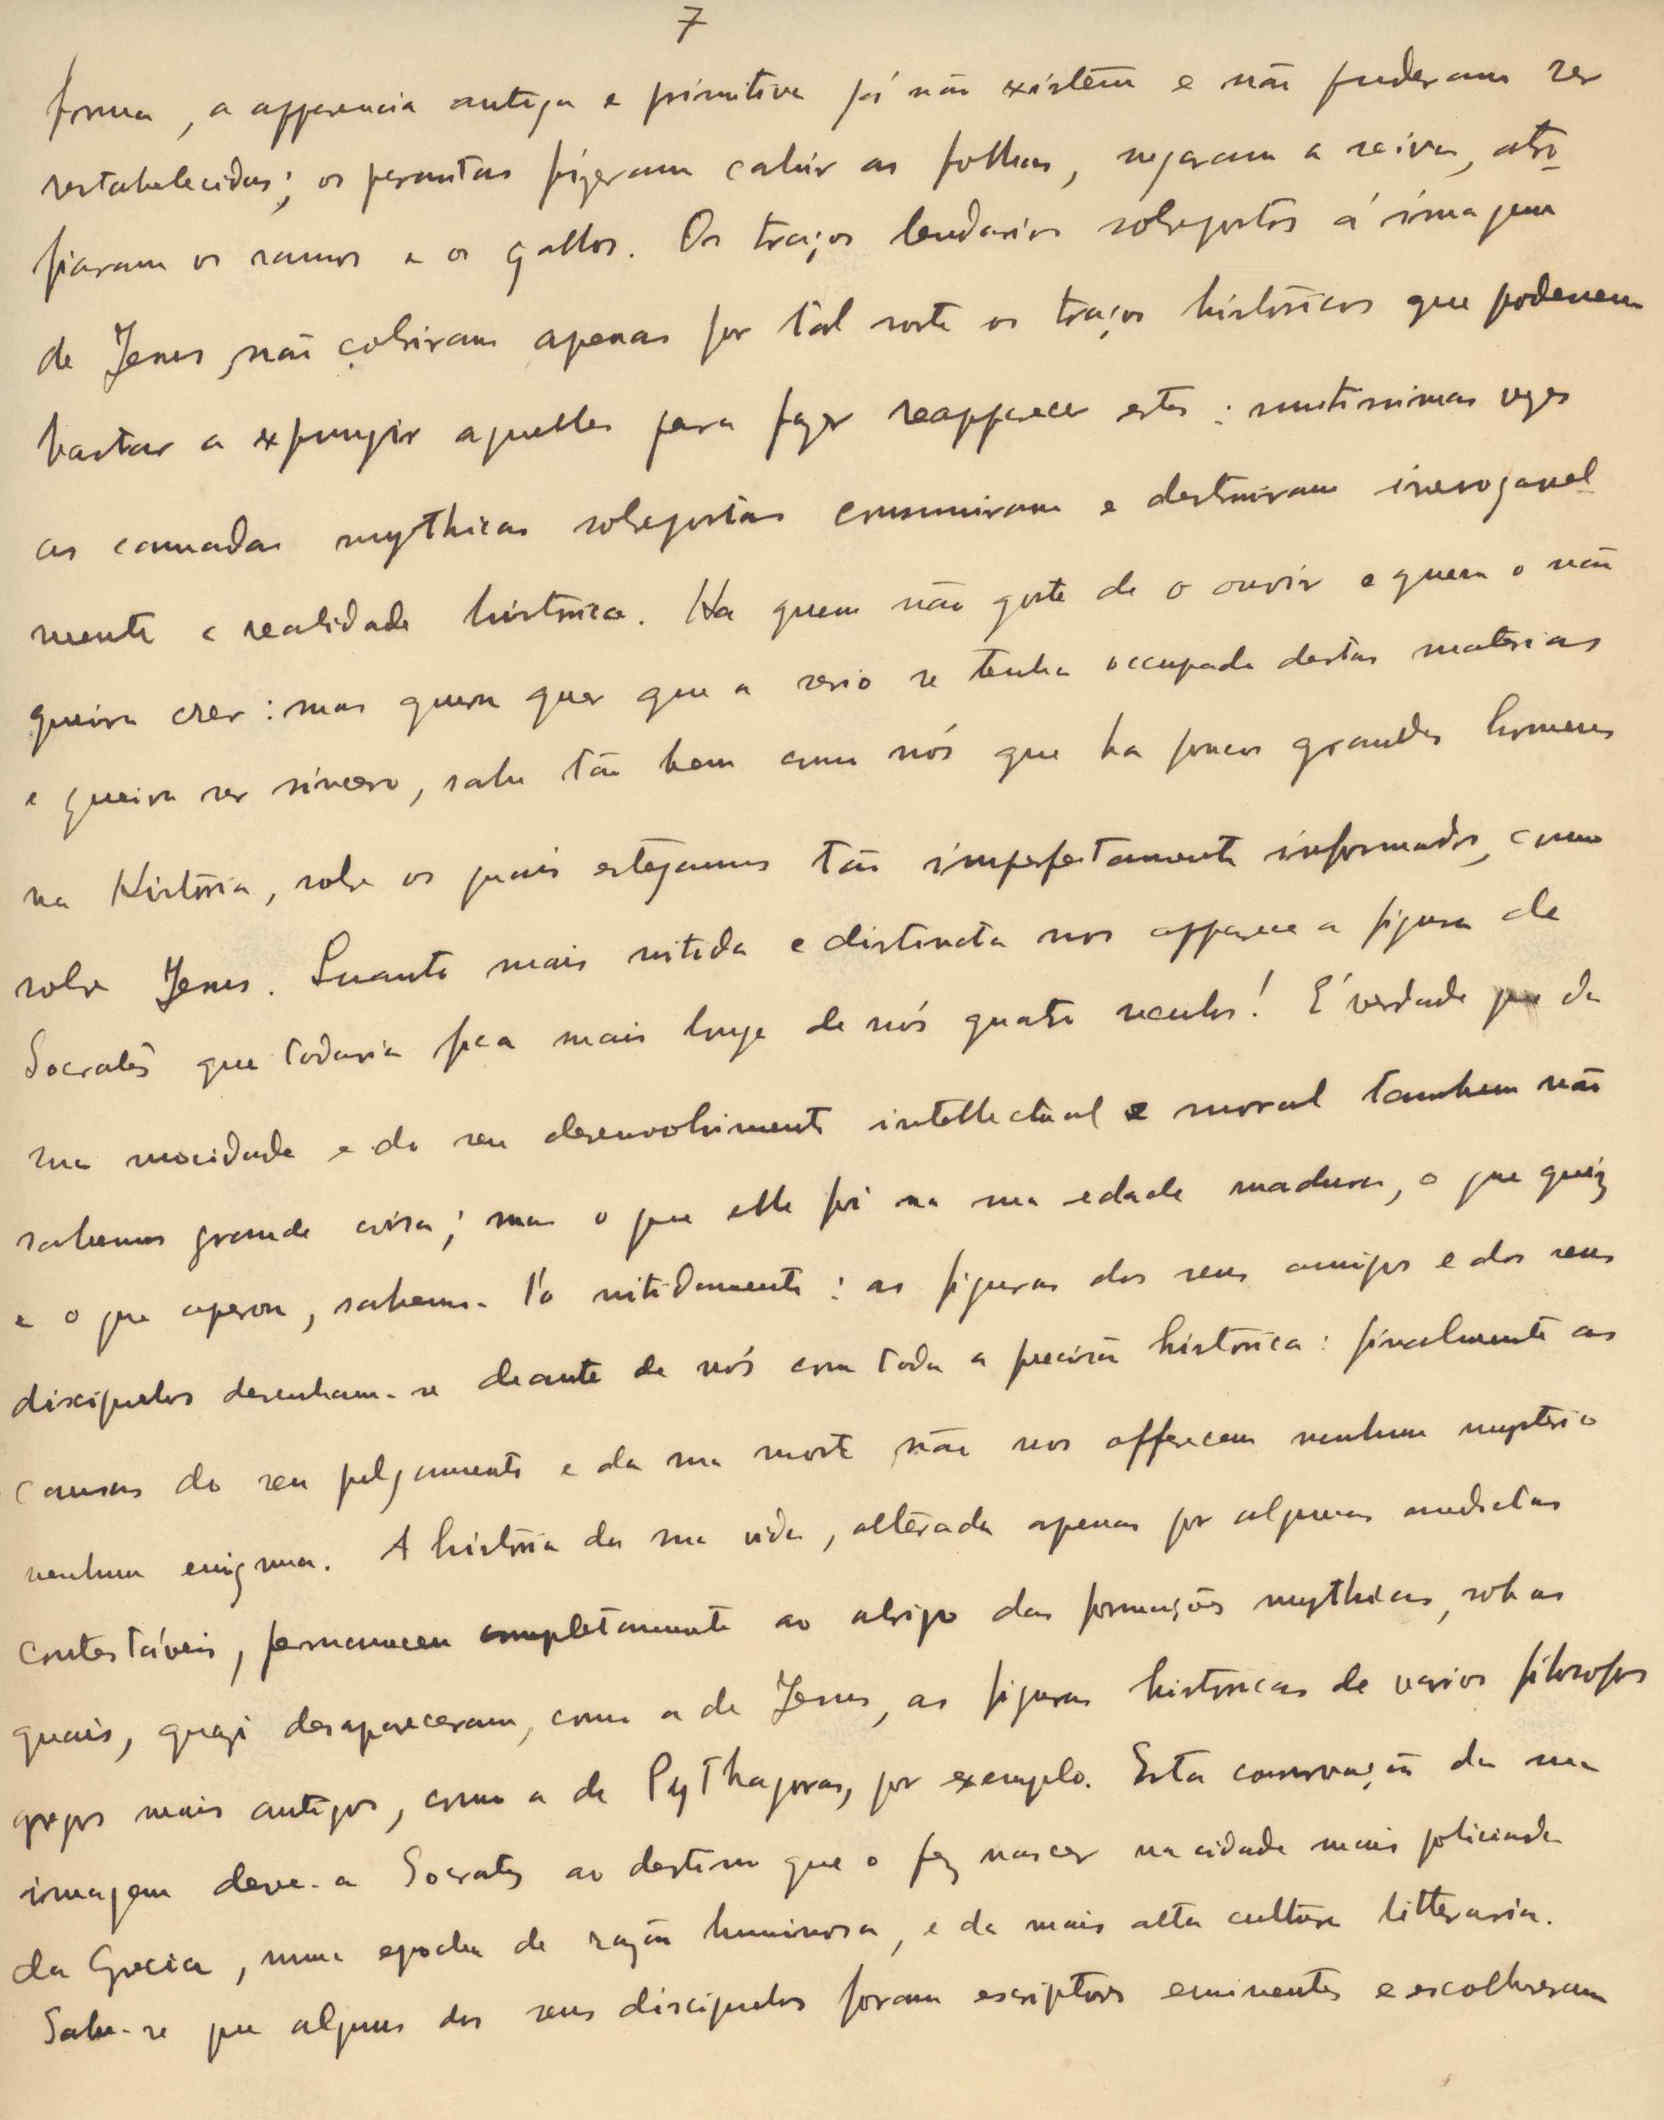 7
forma, a apparencia antiga e primitiva já não existem e não puderam ser
restabelecidas; os parasitas fizeram cahir as folhas, negaram a seiva, atro-
fiaram os ramos e os galhos. Os traços lendarios sobrepostos á imagem
de Jesus, não cobriram apenas por tal sorte os traços históricos que podessem
bastar a expungir aquelles para fazer reapparecer estes: muitissimas vezes
as camadas mythicas sobrepostas consumiram e destruiram irrevogavel-
mente a realidade histórica. Ha quem não goste de o ouvir e quem o não
queira crer: mas quem quer que a serio se tenha occupado destas materias
e queira ser sincero, sabe tão bem como nós que ha poucos grandes homens
na História, sobre os quais estejamos tão imperfeitamente informados, como
sobre Jesus. Quanto mais nitida e distincta nos apparece a figura de
Socrates que todavia fica mais longe de nós quatro seculos! É verdade que da
sua mocidade e do seu desenvolvimento intellectual e moral tambem não
sabemos grande coisa; mas o que elle foi na sua edade madura, o que quiz
e o que operou, sabemo-lo nitidamente: as figuras dos seus amigos e dos seus
discipulos desenham-se deante de nós com toda a precisão histórica: finalmente as
causas do seu julgamento e da sua morte não nos offerecem nenhum mysterio
nenhum enigma. A história da sua vida, alterada apenas por algumas anedoctas
contestáveis, permaneceu completamente ao abrigo das formações mythicas, sob as
quais, quazi desapareceram, como a de Jesus, as figuras historicas de varios filosofos
gregos mais antigos, como a de Pythagoras, por exemplo. Esta conservação da sua
imagem deve-a Socrates ao destino que o fez nascer na cidade mais policiada
da Grecia, numa epocha de razão luminosa, e da mais alta cultura litteraria.
Sabe-se que alguns dos seus discipulos foram escriptores eminentes e escolheram